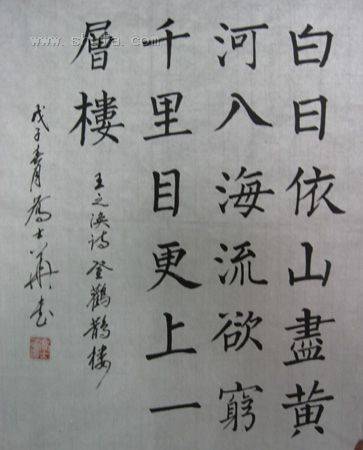 白日依山盡黄
河入海流欲窮
千里目更上一
層樓
王之涣诗登鸛鵲楼
戊子春月